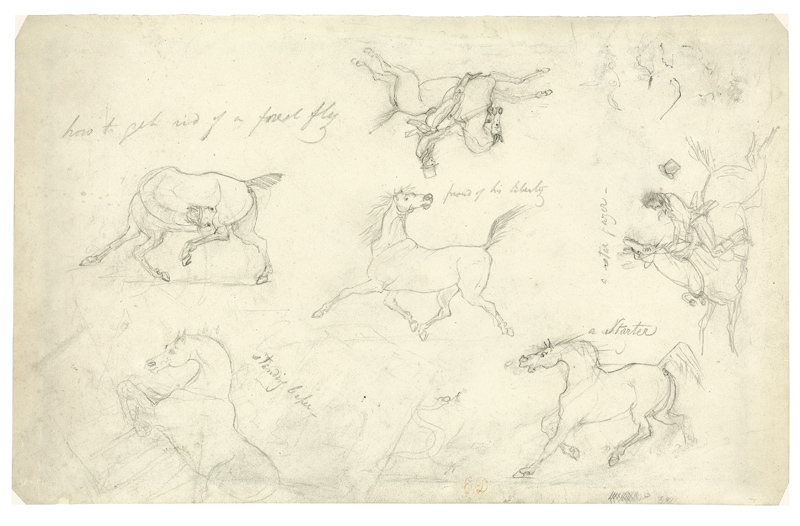 how to get rid of a forest fly
proud of his liberty
a
a Starter
standing